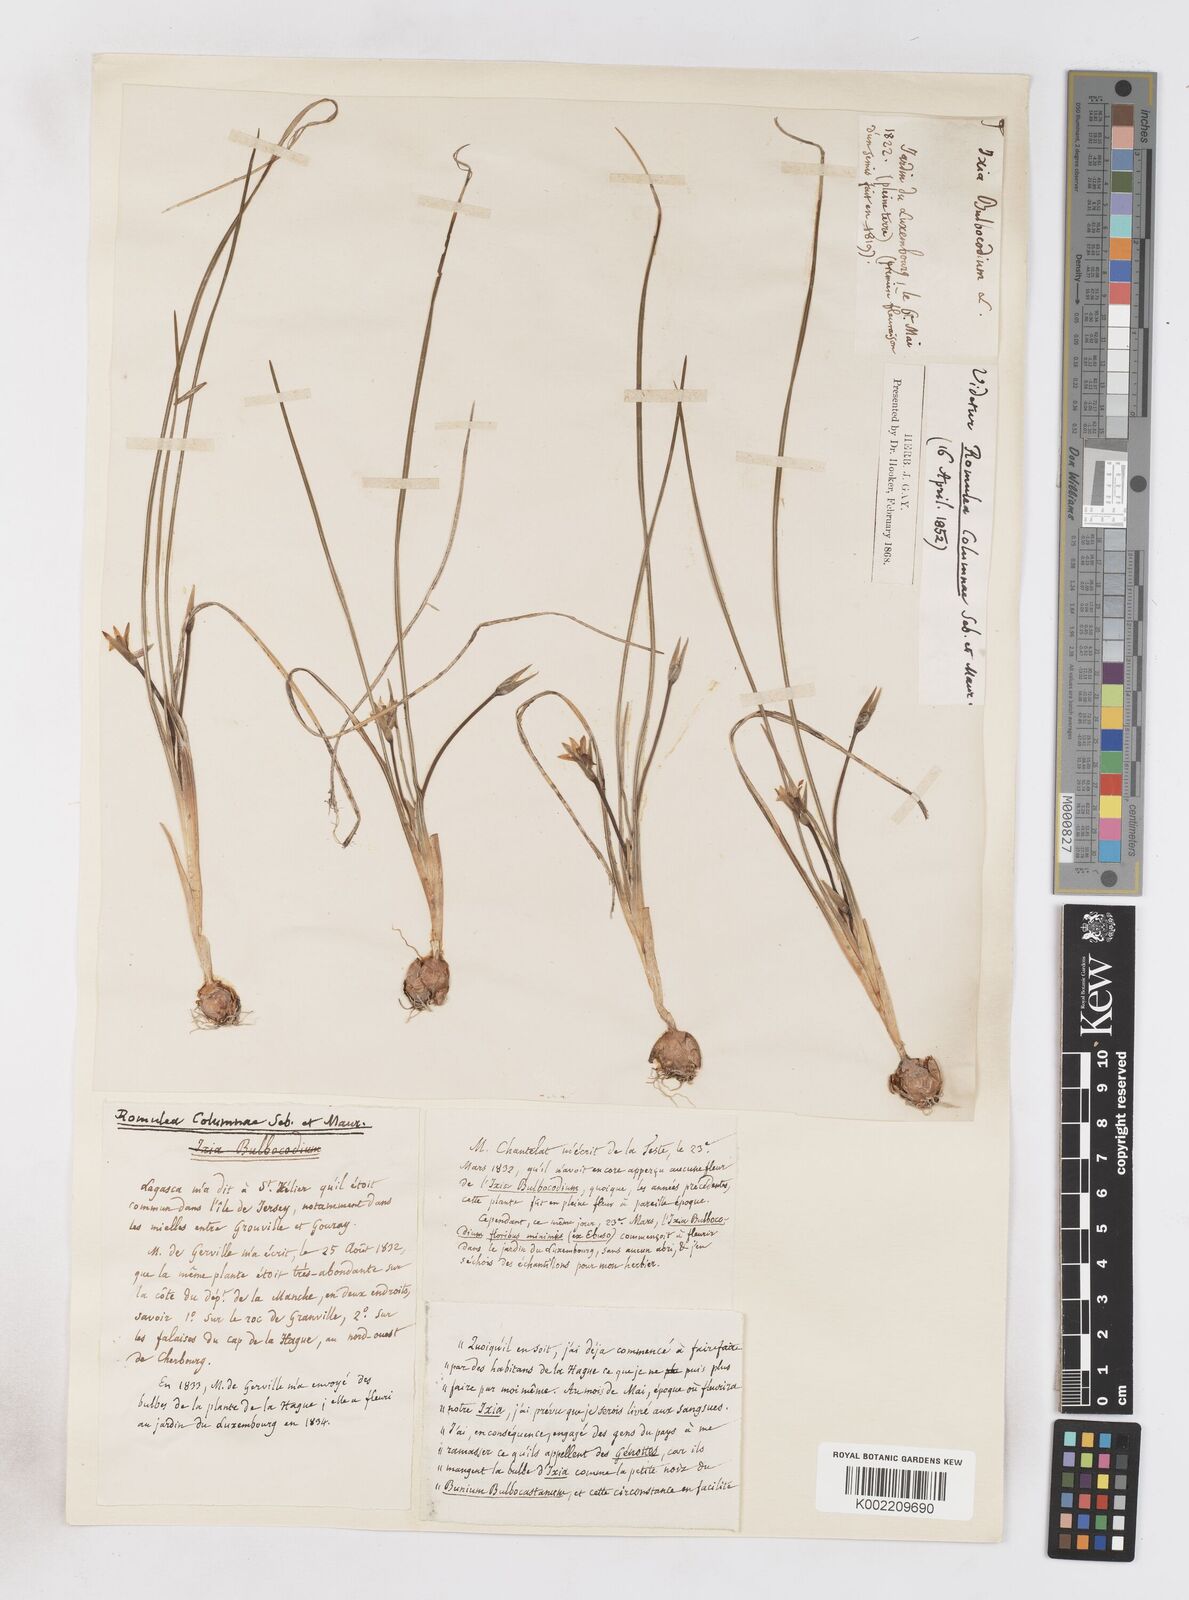 Ixia Bulbocodium L.
Jardin du Luxembourg! le 6e. Mai
1822. (pleine terre) (première fleuraison
d'un semis fait en 1819).
Videtur Romulea Columnae Seb. et Maur.
(16 April. 1852)
HERB. J. GAY.
Presented by Dr. Hooker, February 1868.
Romulea Columnae Seb. et Maur.
Ixia Bulbocodium
Lagasca m'a dit à St. Hélier qu'il étoit
commun dans l'île de Jersey, notamment dans
les mielles entre Grouville et Gouray.
M. de Gerville m'a écrit, le 25 Août 1832,
que la même plante étoit très-abondante sur
la côte du dépt. de la Manche, en deux endroits,
savoir 1º. sur le roc de Granville, 2º. sur
les falaises du cap de la Hague, au nord-ouest
de Cherbourg.
En 1833, M. de Gerville m'a envoyé des
bulbes de la plante de la Hague; elle a fleuri
au jardin du Luxembourg en 1834.
M. Chantelat m'écrit de la Teste, le 23e
Mars 1832, qu'il n'avoit encore apperçu aucune fleur
de l'Ixia Bulbocodium, quoique, les années précédentes,
cette plante fût en pleine fleur à pareille époque.
Cependant, ce même jour, 23e. Mars, l'Ixia Bulboco-
dium floribus minimis (ex Ebuso) commençoit à fleurir
dans le jardin du Luxembourg, sans aucun abri, & j'en
séchois des échantillons pour mon herbier.
" Quoiqu'il en soit, j'ai déja commencé à faire faire
" par des habitans de la Hague ce que je ne puis plus
" faire par moi même. Au mois de Mai, époque où fleurira
" notre Ixia, j'ai prévu que je serois livré aux sangsues.
" J'ai, en conséquence, engagé des gens du pays à me
" ramasser ce qu'ils appellent des Génottes, car ils
" mangent la bulbe d'Ixia comme la petite noix du
" Bunium Bulbocastanum, et cette circonstance en facilite
ROYAL BOTANIC GARDENS KEW
K002209690
inches
centimeters
Density
Don Williams
M000827
Kew
Royal Botanic Gardens
copyright reserved
0 1 2 3 4 5 6 7 8 9 10
cm